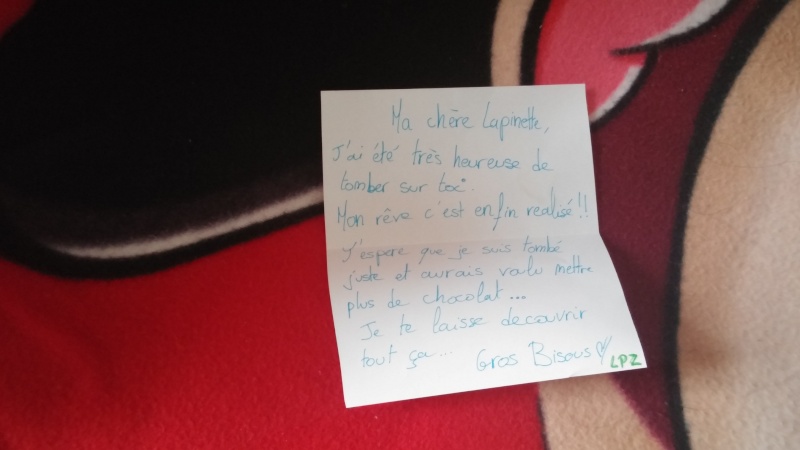 Ma chère Lapinette,
J'ai été très heureuse de
tomber sur toi.
Mon rêve c'est enfin realisé!!
J'espere que je suis tombé
juste et aurais valu mettre
plus de chocolat...
Je te laisse decouvrir
tout ça... Gros Bisous
LPZ